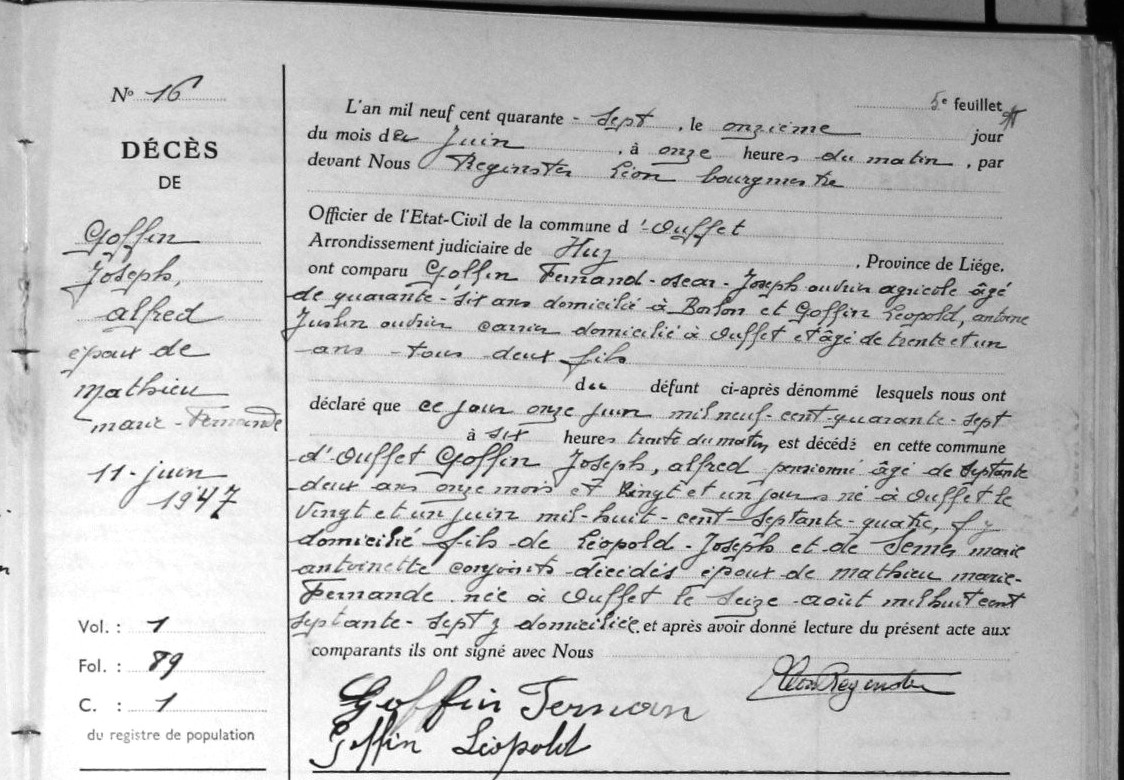 N° 16
DÉCÈS
DE
Goffin
Joseph,
alfred
époux de
Mathieu
marie-Fernande
11-juin
1947
Vol. : 1
Fol. : 89
C. : 1
du registre de population
5e feuillet
L'an mil neuf cent quarante - sept, le onzième jour
du mois de Juin, à onze heures du matin, par
devant Nous Reginster Léon bourgmestre
Officier de l'Etat-Civil de la commune d'Ouffet
Arrondissement judiciaire de Huy, Province de Liége,
ont comparu Goffin Fernand-oscar-Joseph ouvrier agricole âgé
de quarante-six ans domicilié à Borlon et Goffin Léopold, antoine
Justin ouvrier carrier domicilié à Ouffet et âgé de trente et un
ans tous deux fils
du défunt ci-après dénommé lesquels nous ont
déclaré que ce jour onze juin mil neuf-cent-quarante-sept
à six heures trente du matin est décédé en cette commune
d'Ouffet Goffin Joseph, alfred pensionné âgé de septante
deux ans onze mois et vingt et un jours né à Ouffet le
vingt et un juin mil-huit-cent-septante-quatre, y
domicilié fils de Léopold-Joseph et de marie
antoinette conjoints décédés époux de mathieu marie-
Fernande née à Ouffet le seize août mil huit cent
septante-sept y domiciliée. et après avoir donné lecture du présent acte aux
comparants ils ont signé avec Nous
Léon Reginster
Goffin Fernan
Goffin Léopold